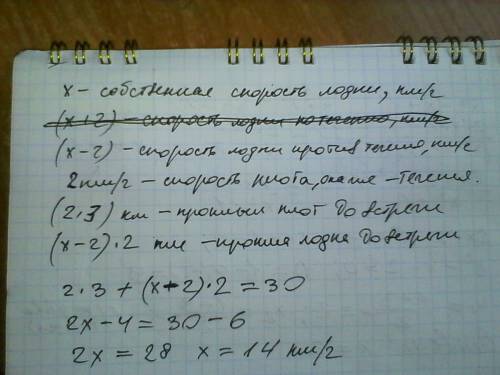 x – собственная скорость лодки, км/г
(x+2) – скорость лодки по течению, км/г
(x-2) – скорость лодки против течения, км/г
2 км/г – скорость плота, она же – течения.
(2·3) км – проплыл плот до встречи
(x-2)·2 км – прошла лодка до встречи
2·3 + (x-2)·2 = 30
2x - 4 = 30 - 6
2x = 28 x = 14 км/г